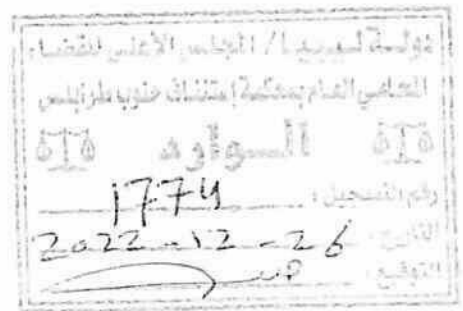 دولة ليبيا / المجلس الأعلى للقضاء
المحامي العام بمحكمة إستئناف جنوب طرابلس
الوارد
رقم التسجيل : 1774
التاريخ : 2022-12-26
التوقيع :